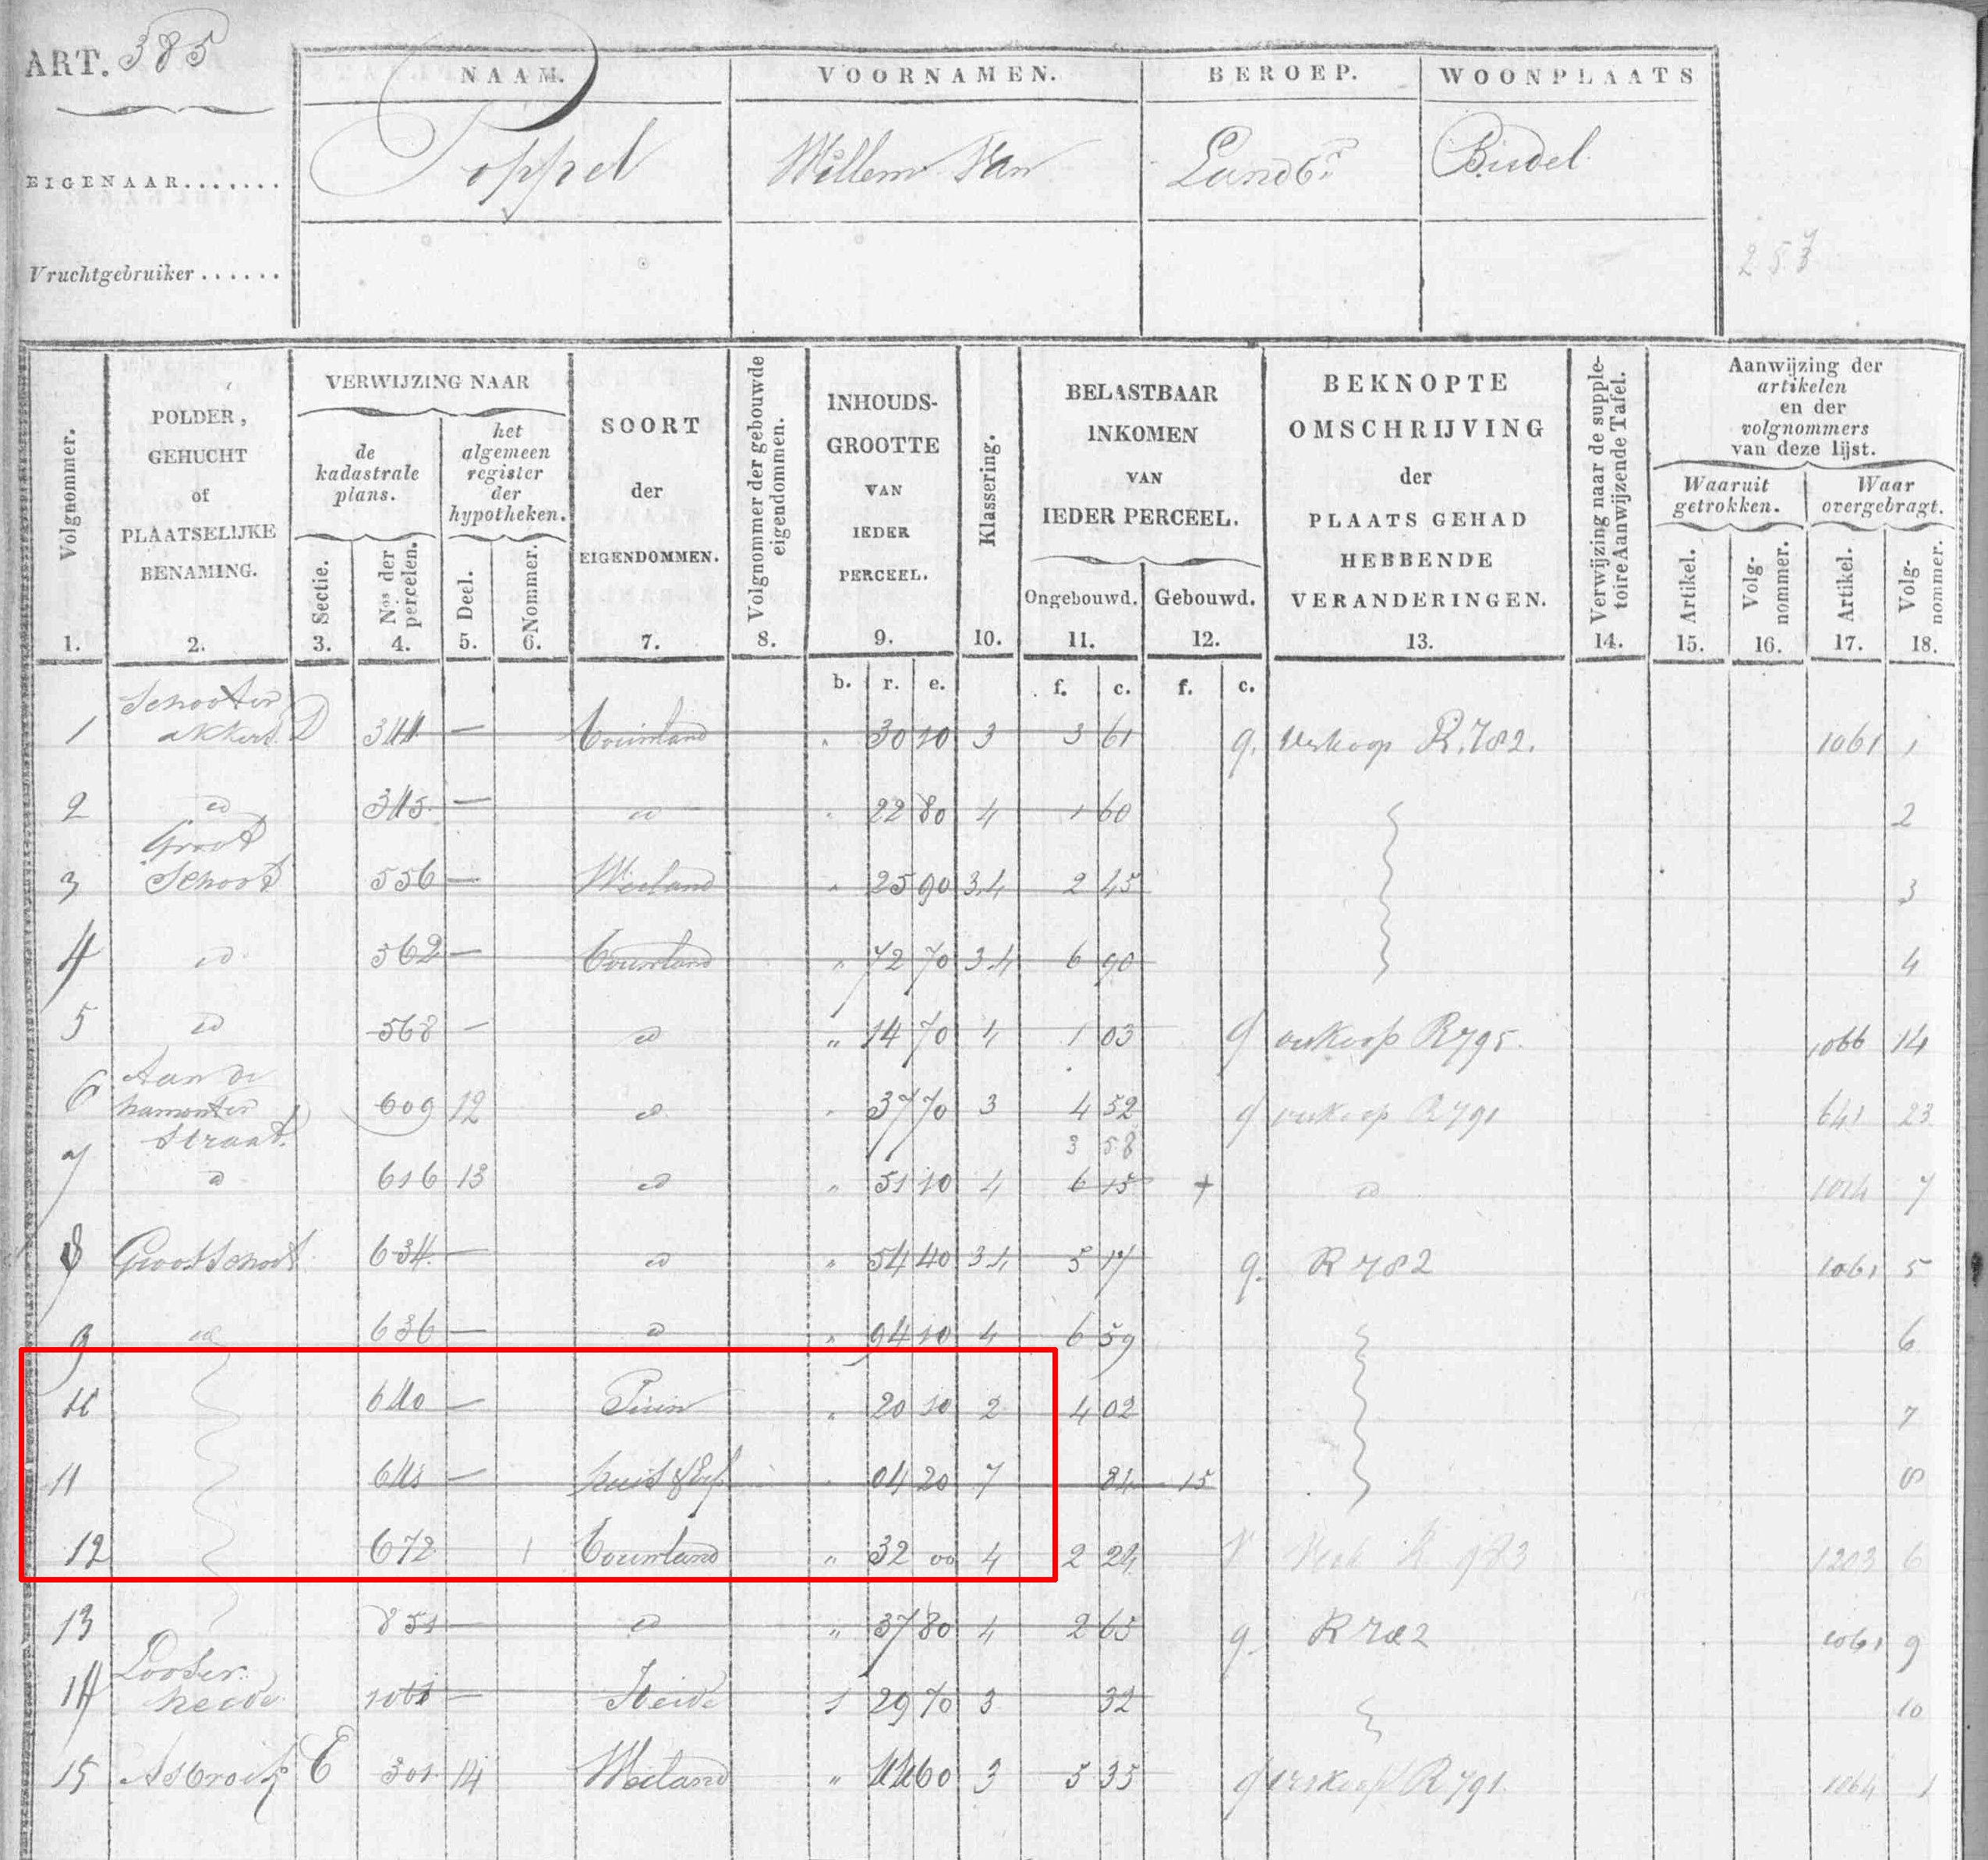 ART. 385
NAAM. VOORNAMEN. BEROEP. WOONPLAATS
EIGENAAR....... Poppel Willem Van Landbr. Budel
Vruchtgebruiker......
257
Volgnommer. 1.
POLDER, GEHUCHT of PLAATSELIJKE BENAMING. 2.
VERWIJZING NAAR
de kadastrale plans.
Sectie. 3.
Nos der percelen. 4.
het algemeen register der hypotheken.
Deel. 5.
Nommer. 6.
SOORT der EIGENDOMMEN. 7.
Volgnommer der gebouwde eigendommen. 8.
INHOUDS-GROOTTE VAN IEDER PERCEEL. 9.
Klassering. 10.
BELASTBAAR INKOMEN VAN IEDER PERCEEL.
Ongebouwd. 11.
Gebouwd. 12.
BEKNOPTE OMSCHRIJVING der PLAATS GEHAD HEBBENDE VERANDERINGEN. 13.
Verwijzing naar de suppletoire Aanwijzende Tafel. 14.
Aanwijzing der artikelen en der volgnommers van deze lijst.
Waaruit getrokken.
Artikel. 15.
Volg-nommer. 16.
Waar overgebragt.
Artikel. 17.
Volg-nommer. 18.
b. r. e. f. c. f. c.
1 Schooter akkers D 344 — Bouwland " 30 10 3 3 61 g. Verkoop R.782. 1061 1
2 id 345 — id " 22 80 4 1 60 2
3 Groot Schoot 556 — Weiland " 25 90 3.4 2 45 3
4 id 562 — Bouwland " 72 70 3.4 6 90 4
5 id 568 — id " 14 70 4 1 03 g verkoop R 795. 1066 14
6 Aan de hamonter straat. 609 12 id " 37 70 3 4 52 g verkoop R 791 641 23
3 58
7 id 616 13 id " 51 10 4 6 15 + id 1014 7
8 Groot Schoot 634 — id " 54 40 3 4 5 17 g. R 782 1061 5
9 id 636 — id " 94 10 4 6 59 6
10 640 — Tuin " 20 10 2 4 02 7
11 641 — huis & Erf " 04 20 7 84 15 8
12 672 Bouwland " 32 00 4 2 24 V Verk R 983 1203 6
13 851 — id " 37 80 4 2 65 g. R 782 1061 9
14 Looter heide 1061 — Heide 1 29 70 3 32 10
15 Asbroek E 301 14 Weiland " 44 60 3 5 35 g verkoop R 791. 1064 1